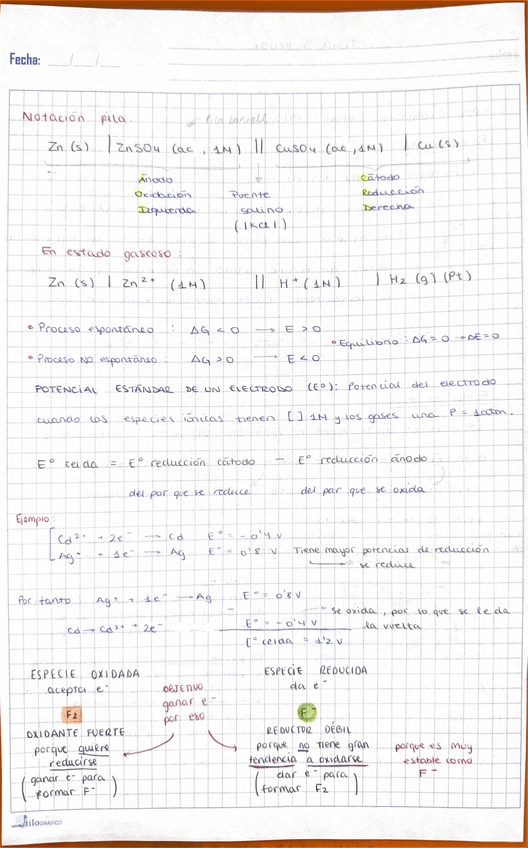 Fecha: __/__/__
Notación pila.
Pila Daniell
Zn (s) | ZnSO4 (ac, 1M) || CuSO4 (ac, 1M) | Cu (s)
Ánodo
Oxidación
Izquierda
Puente
salino
(KCl)
Cátodo
Reducción
Derecha
En estado gaseoso:
Zn (s) | Zn²⁺ (1M) || H⁺ (1M) | H2 (g) (Pt)
• Proceso espontáneo : ΔG < 0 → E > 0
• Equilibrio : ΔG = 0 → ΔE = 0
• Proceso NO espontáneo : ΔG > 0 → E < 0
POTENCIAL ESTÁNDAR DE UN ELECTRODO (Eº): Potencial del electrodo
cuando las especies iónicas tienen [ ] 1M y los gases una P = 1atm.
Eº celda = Eº reducción cátodo − Eº reducción ánodo
del par que se reduce del par que se oxida
Ejemplo:
Cd²⁺ + 2e⁻ → Cd Eº = −0'4 V
Ag⁺ + 1e⁻ → Ag Eº = 0'8 V Tiene mayor potencias de reducción
se reduce
Por tanto: Ag⁺ + 1e⁻ → Ag Eº = 0'8 V
−
se oxida, por lo que se le da
la vuelta
Cd → Cd²⁺ + 2e⁻ Eº = −0'4 V
Eº celda = 1'2 V
ESPECIE OXIDADA
acepta e⁻
F2
OXIDANTE FUERTE
porque quiere
reducirse
(ganar e⁻ para
formar F⁻)
OBJETIVO
ganar e⁻
por eso
ESPECIE REDUCIDA
da e⁻
F⁻
REDUCTOR DÉBIL
porque no tiene gran
tendencia a oxidarse
(dar e⁻ para
formar F2)
porque es muy
estable como
F⁻
Stilo GRÁFICO